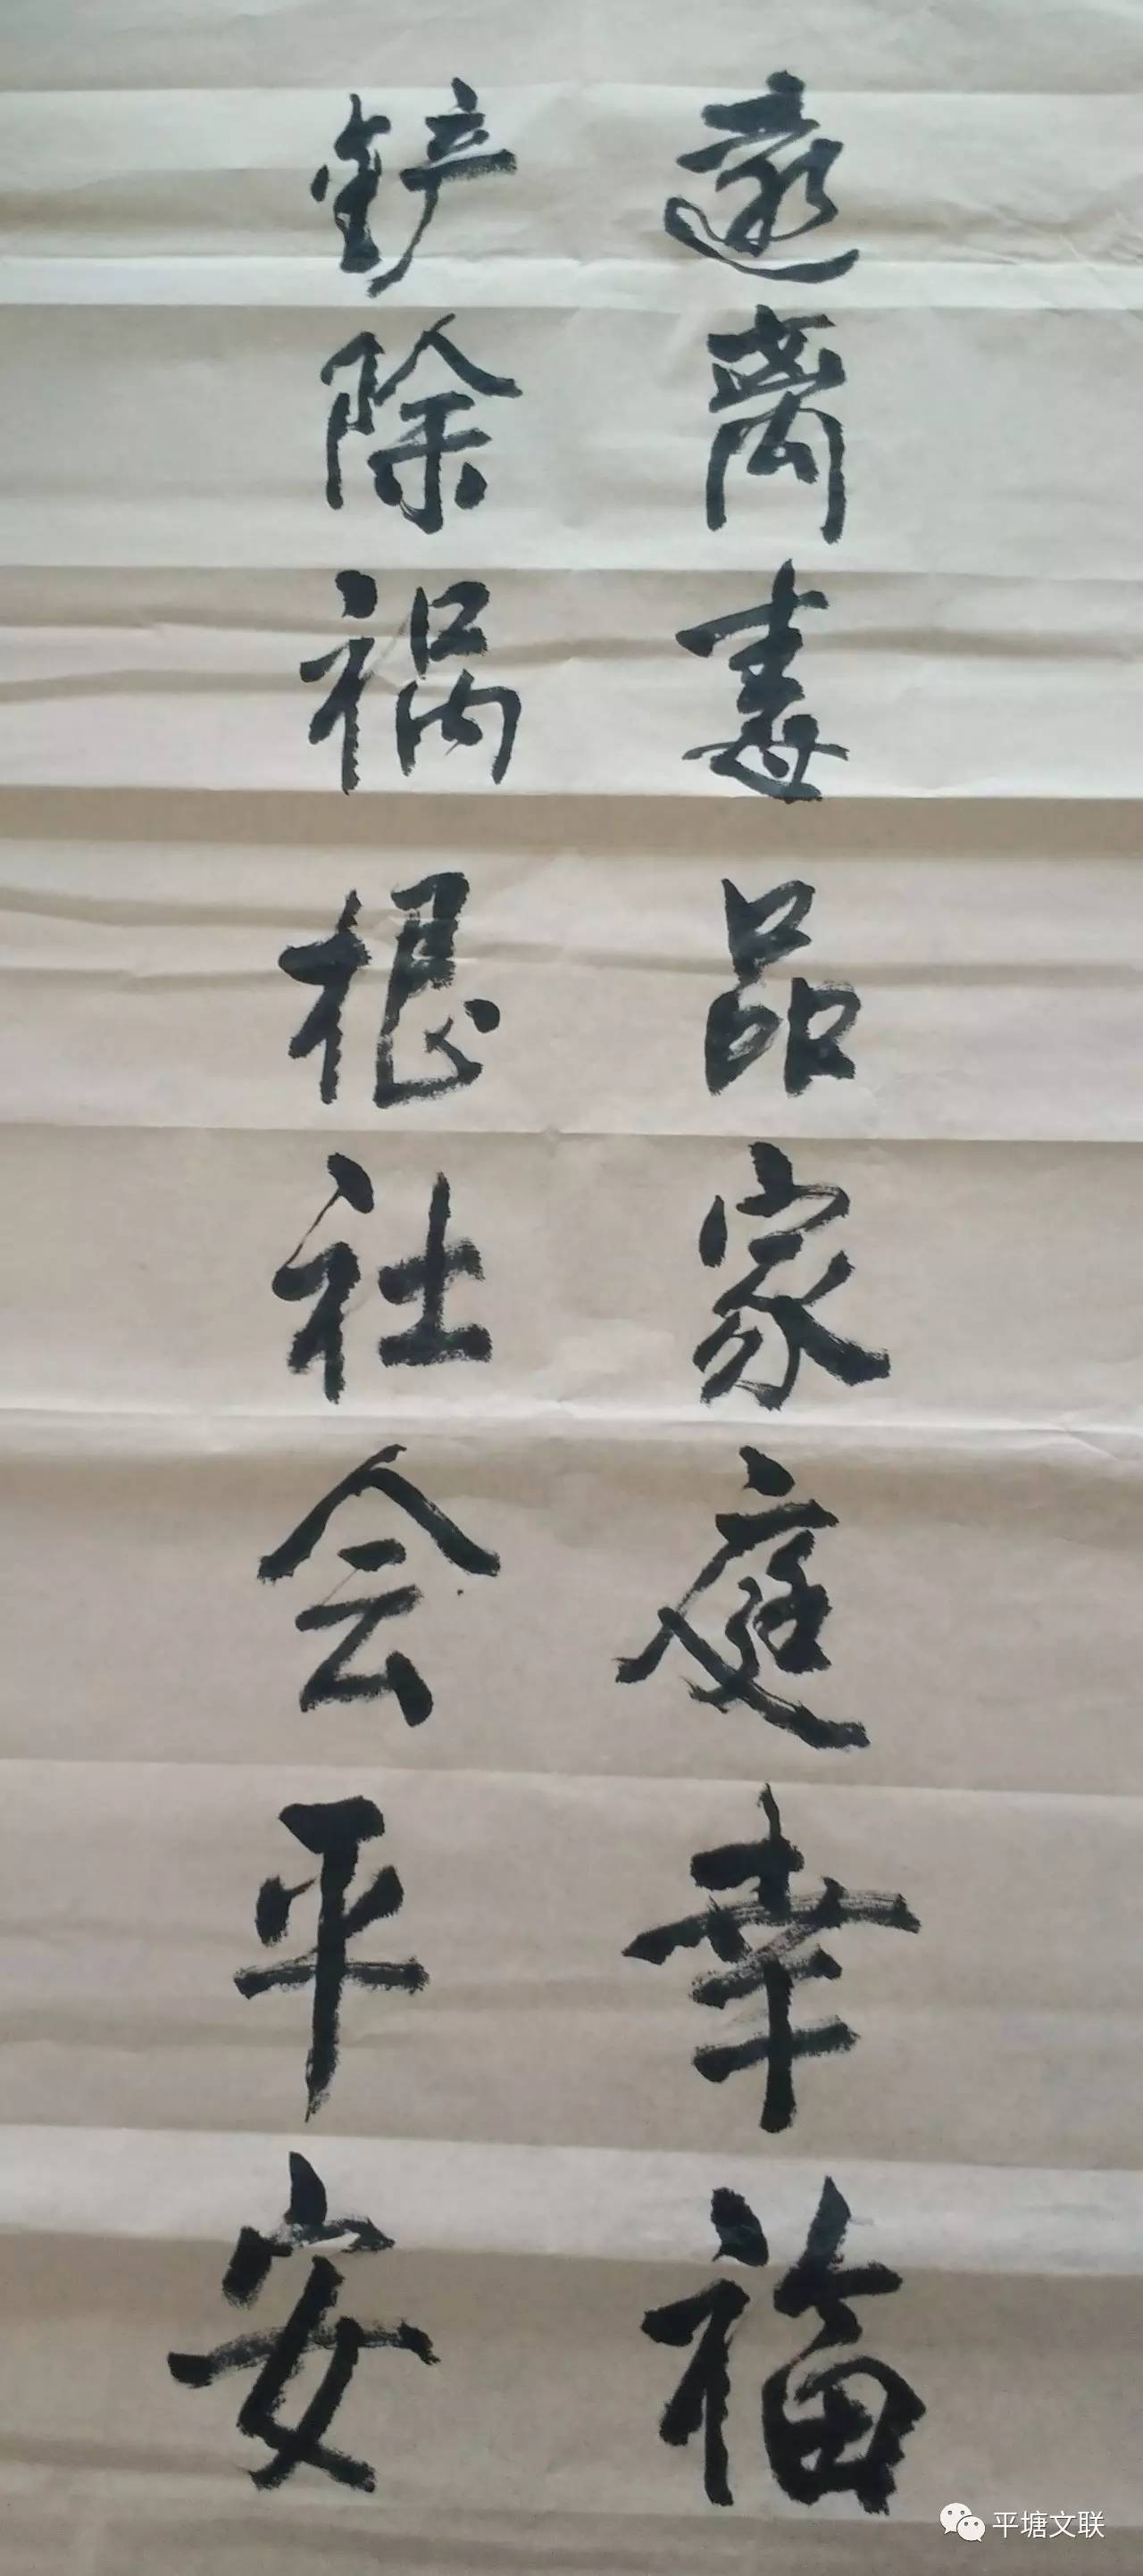 遠离毒品家庭幸福
铲除祸根社会平安
平塘文联